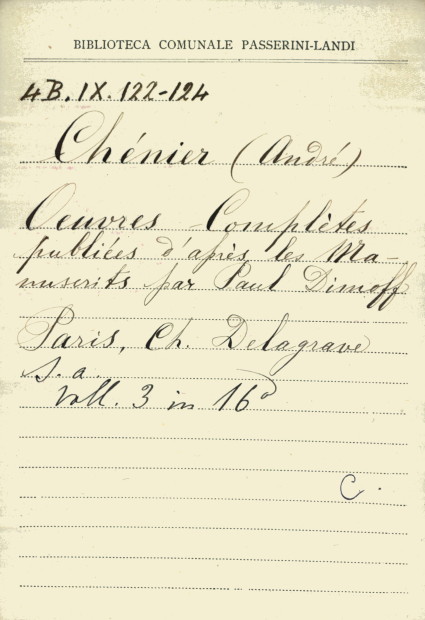 BIBLIOTECA COMUNALE PASSERINI-LANDI
4B. IX. 122-124
Chénier (André)
Oeuvres Complètes
publiées d'après les Ma-
nuscrits par Paul Dimoff
Paris, Ch. Delagrave
s. a.
Voll. 3 in 16º
C.